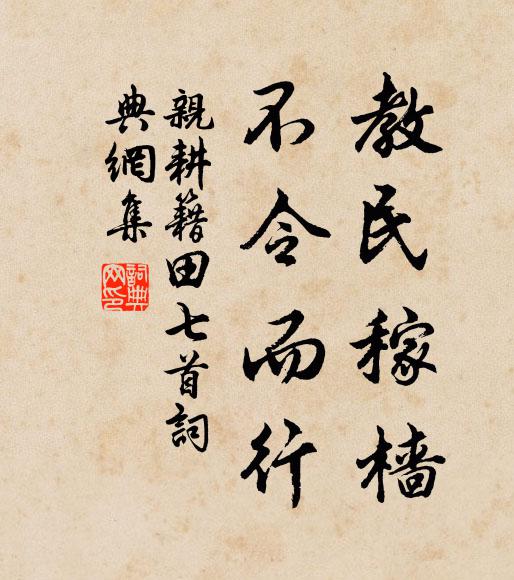 教民稼樯
不令而行
親耕籍田七首詞
典網集
詞典
网印